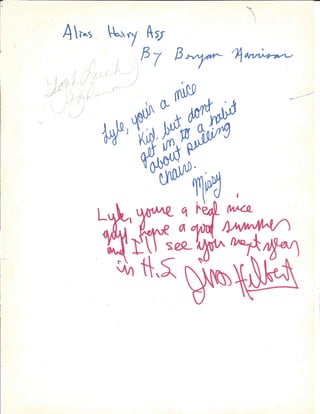 Alias Hairy Ass
By Bryan Harrison
Lyle, your a nice
kid but dont
get in to a habit
about pulling
chairs.
Missy
Lyle, youre a real nice
guy, have a good summer
and I'll see you next year
in H.S
Jim Hilbert